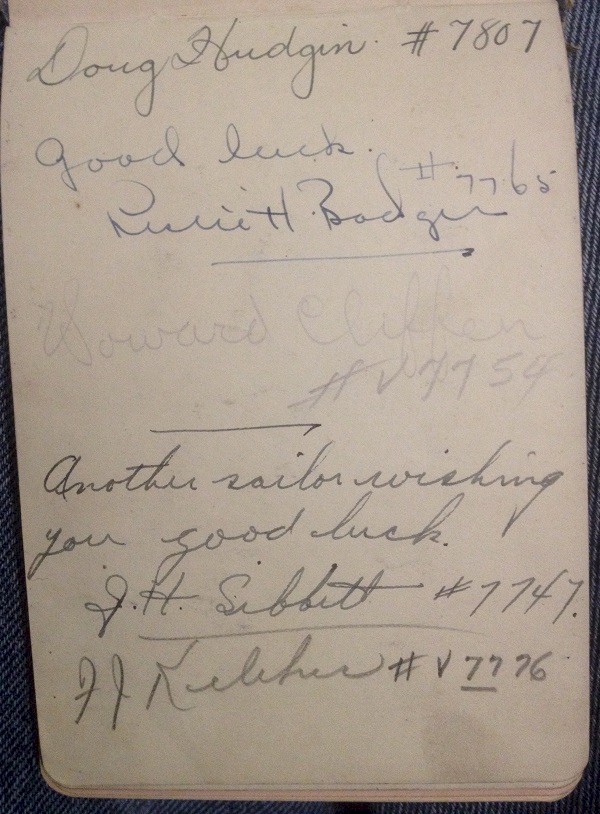 Doug Hudgin. #7807
Good luck.
#7765
Badger
Howard
#V7754
Another sailor wishing
you good luck.
J.H. Sibbett #7747.
FJ Kelcher #V7776